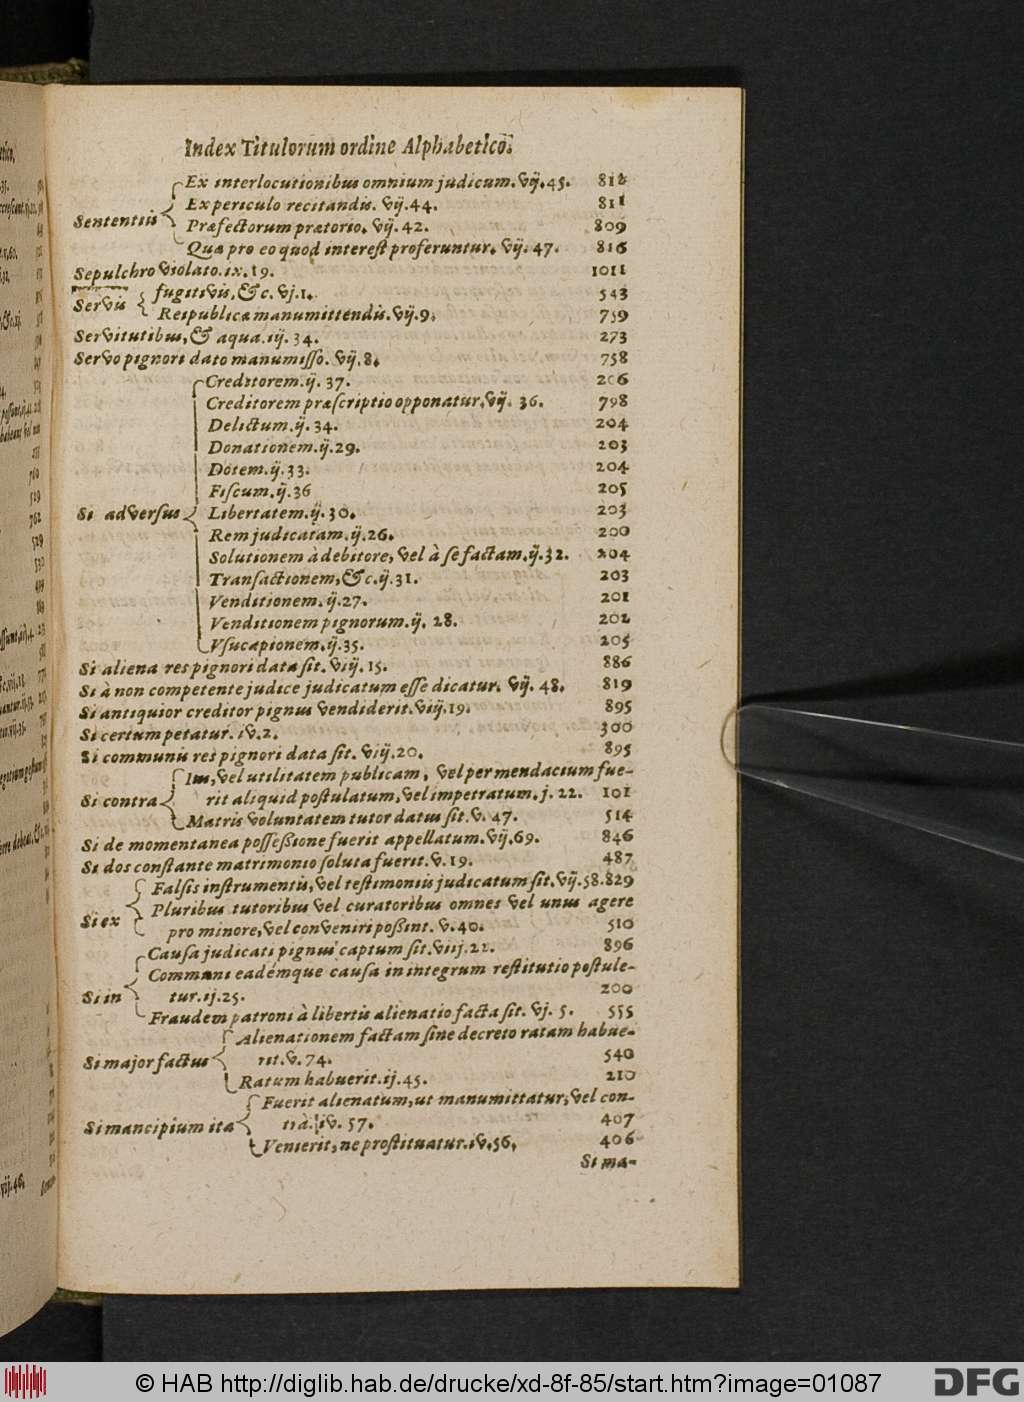 Index Titulorum ordine Alphabetico.
Ex interlocutionibus omnium judicum. vij. 45. 812
Ex periculo recitandis. vij. 44. 811
Sententiis
Præfectorum prætorio. vij. 42. 809
Quæ pro eo quod interest proferuntur. vij. 47. 816
Sepulchro violato. ix. 19. 1011
fugitivis, & c. vj. 1. 543
Servis
Reipublicæ manumittendis. vij. 9. 759
Servitutibus, & aqua. iij. 34. 273
Servo pignori dato manumisso. vij. 8. 758
Creditorem. ij. 37. 206
Creditorem præscriptio opponatur. vij. 36. 798
Delictum. ij. 34. 204
Donationem. ij. 29. 203
Dotem. ij. 33. 204
Fiscum. ij. 36 205
Si adversus Libertatem. ij. 30. 203
Rem judicatam. ij. 26. 200
Solutionem à debitore, vel à se factam. ij. 32. 204
Transactionem, & c. ij. 31. 203
Venditionem. ij. 27. 201
Venditionem pignorum. ij. 28. 202
Vsucapionem. ij. 35. 205
Si aliena res pignori data sit. viij. 15. 886
Si à non competente judice judicatum esse dicatur. vij. 48. 819
Si antiquior creditor pignus vendiderit. viij. 19. 895
Si certum petatur. iv. 2. 300
Si communis res pignori data sit. viij. 20. 895
Ius, vel utilitatem publicam, vel per mendacium fue-
Si contra rit aliquid postulatum, vel impetratum. j. 22. 101
Matris voluntatem tutor datus sit. v. 47. 514
Si de momentanea possessione fuerit appellatum. vij. 69. 846
Si dos constante matrimonio soluta fuerit. v. 19. 487
Falsis instrumentis, vel testimoniis judicatum sit. vij. 58. 829
Si ex Pluribus tutoribus vel curatoribus omnes vel unus agere
pro minore, vel conveniri possint. v. 40. 510
Causa judicati pignus captum sit. viij. 22. 896
Communi eadémque causa in integrum restitutio postule-
Si in tur. ij. 25. 200
Fraudem patroni à libertis alienatio facta sit. vj. 5. 555
Alienationem factam sine decreto ratam habue-
Si major factus rit. v. 74. 540
Ratum habuerit. ij. 45. 210
Fuerit alienatum, ut manumittatur, vel con-
Si mancipium ita trà. iv. 57. 407
Venierit, ne prostituatur. iv. 56. 406
Si ma-
© HAB http://diglib.hab.de/drucke/xd-8f-85/start.htm?image=01087
DFG